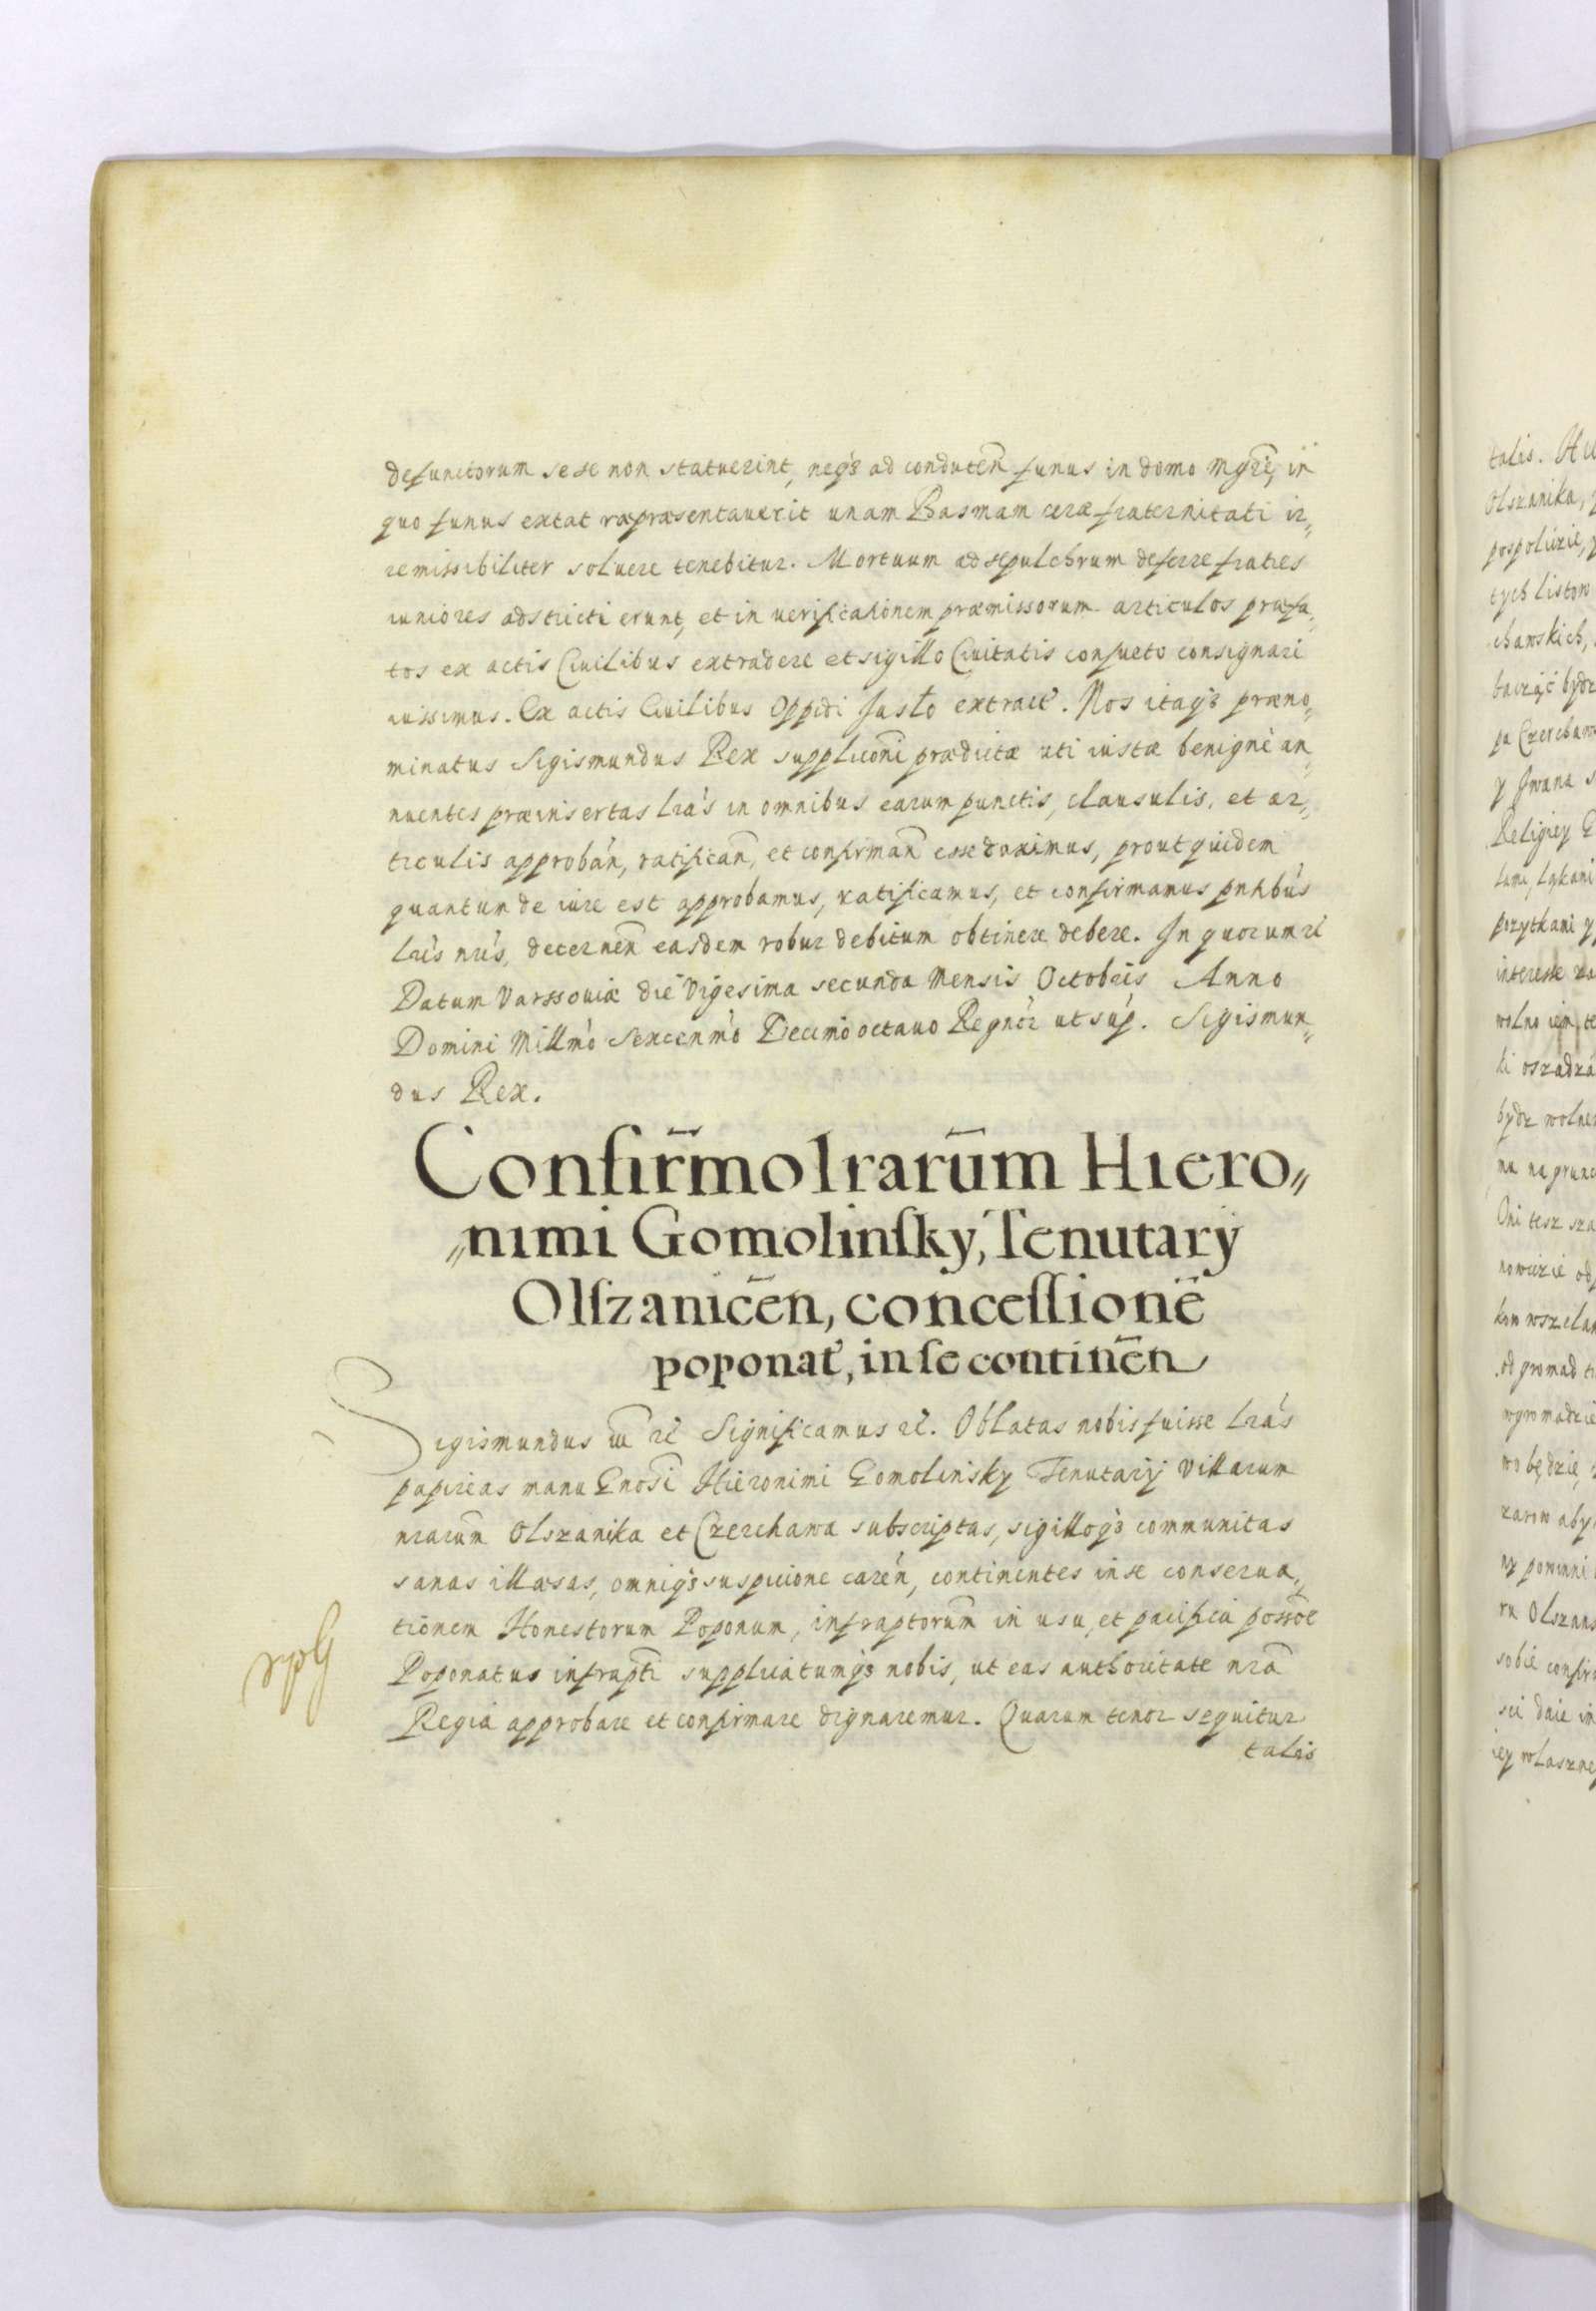 defunctorum sese non statuerint, neqз ad conducteñ funus in domo Mgrĩ, in
quo funus extat repræsentauerit unam Basmam ceræ fraternitati ir„
remissibiliter soluere tenebitur. Mortuum ad sepulchrum deferre fratres
iuniores adstricti erunt, et in uerificationem præmissorum articulos præfa„
tos ex actis Ciuilibus extradere et sigillo Ciuitatis consueto consignari
iussimus. Ex actis Ciuilibus Oppidi Jasło extract. Nos itaqз præno„
minatus Sigismundus Rex suppliconi prædictæ uti iustæ benignè an„
nuentes præinsertas lrás in omnibus earum punctis, clausulis, et ar„
ticulis approbán, ratificañ, et confirmañ esse duximus, prout quidem
quantum de iure est approbamus, ratificamus, et confirmamus pntibús
lrís nrís, decerneñ easdem robur debitum obtinere debere. In quorum rẽ
Datum Varssouiæ die Vigesima secunda Mensis Octobris Anno
Domini Millmó Sexcenmó Decimo octauo Regnór ut súp. Sigismun„
dus Rex.
Confir̃mo lrarũm Hiero„
„nimi Gomolinſky, Tenutarÿ
Olſzanic̃en, conceſſionẽ
poponat', in ſe contiñen
Sigismundus III rẽ Significamus rẽ. Oblatas nobis fuisse lrás
papireas manu Gnosĩ Hieronimi Gomolinsky Tenutarÿ Villarum
nrarũm Olszanika et Czerchawa subscriptas, sigilloqз communitas
sanas illæsas, omniqз suspicione carén, continentes in se conserua„
tionem Honestorum Poponum, infraptorũm in usu, et pacifica possõe
Poponatus infraptĩ supplicatumqз nobis, ut eas authoritate nrã
Regia approbare et confirmare dignaremur. Quarum tenor sequitur
talis
talis. Hi
Olszanika,
pospolicie,
tych listow
chawskich,
baczạć bydz
pa Czerchaw
y Jwana
Religiey
łami, łąkami
pozytkami y
interesse
wolno iem
bydz wolne
na na grunc
Oni tesz
nowicie od
kow wszela
od gromad
wgromadzie
wo będzie,
zarow aby
ny powinni
ru Olszans
sobie confir
sci daie
iey wlaszney